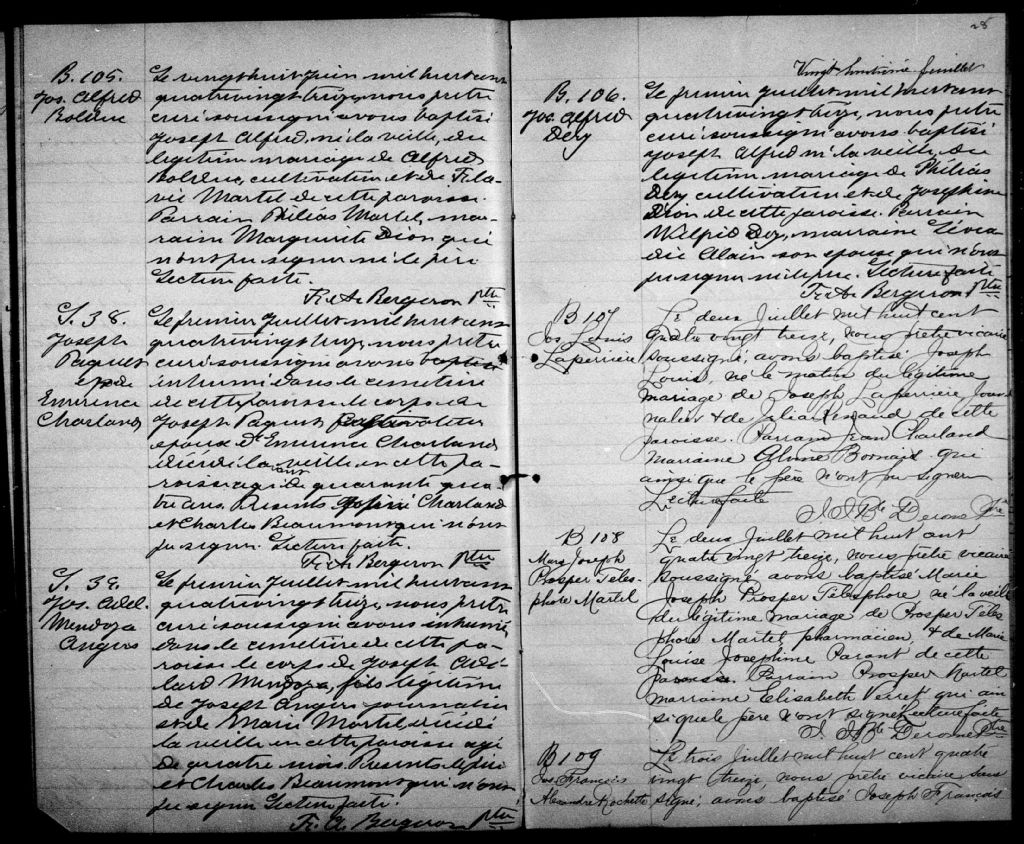 B. 105.
Jos. Alfred
Bolduc
Le vingt huit juin mil huit cent
quatrevingt treize, nous prêtre
curé soussigné avons baptisé
Joseph Alfred, né la veille, du
légitime mariage de Alfred
Bolduc, cultivateur et de Fla-
vie Martel de cette paroisse.
Parrain Philias Martel, mar-
raine Marguerite Dion qui
n'ont pu signer ni le père
Lecture faite.
F. A. Bergeron Ptre
S. 38.
Joseph
Paquet
ép. de
Emérence
Charland
Le premier Juillet mil huit cent
quatrevingt treize, nous prêtre
curé soussigné avons
inhumé dans le cimetière
de cette paroisse le corps de
Joseph Paquet
époux d'Emerence Charland
décédé la veille en cette pa-
roisse agé de quarante qua-
tre ans. Présents Charland
et Charles Beaumont qui n'ont
pu signer. Lecture faite.
F. A. Bergeron Ptre
S. 39.
Jos. Adel.
Mendoza
Angers
Le premier Juillet mil huit cent
quatrevingt treize, nous prêtre
curé soussigné avons inhumé,
dans le cimetière de cette pa-
roisse le corps de Joseph Adé-
lard Mendoza, fils légitime
de Joseph Angers journalier
et de Marie Martel, décédé
la veille en cette paroisse agé
de quatre mois. Présents le père
et Charles Beaumont qui n'ont
pu signer Lecture faite.
F. A. Bergeron ptre
28
Vingt huitième feuillet
B. 106.
Jos. Alfred
Dery
Le premier Juillet mil huit cent
quatrevingt treize, nous prêtre
curé soussigné avons baptisé
Joseph Alfred né la veille, du
légitime mariage de Philias
Dery cultivateur et de Joséphine
Dion de cette paroisse. Parrain
Wilfrid Dery, marraine
Alain son épouse qui n'ont
pu signer ni le père. Lecture faite
F. A. Bergeron Ptre
B 107
Jos Louis
Laperrière
Le deux Juillet mil huit cent
quatre vingt treize, nous prêtre vicaire
soussigné, avons baptisé Joseph
Louis, né le matin du légitime
mariage de Joseph Laperrière Jour-
nalier & de Julia Renaud de cette
paroisse. Parrain Jean Charland
Marraine qui
ainsi que le père n'ont pu signer
Lecture faite
J. J. Bte Derome Ptre
B 108
Mary Joseph
Prosper Teles-
phore Martel
Le deux Juillet mil huit cent
quatre vingt treize, nous prêtre vicaire
soussigné, avons baptisé Marie
Joseph Prosper Télesphore né la veille
du légitime mariage de Prosper Téles-
phore Martel pharmacien, & de Marie
Louise Josephine Parant de cette
paroisse. Parrain Prosper Martel
marraine Elisabeth Verret qui ain-
si que le père n'ont signé Lecture faite
J. J. Bte Derome Ptre
B 109
Jos François
Alexandre Rochette
Le trois Juillet mil huit cent quatre
vingt treize nous prêtre vicaire sous-
signé, avons baptisé Joseph François